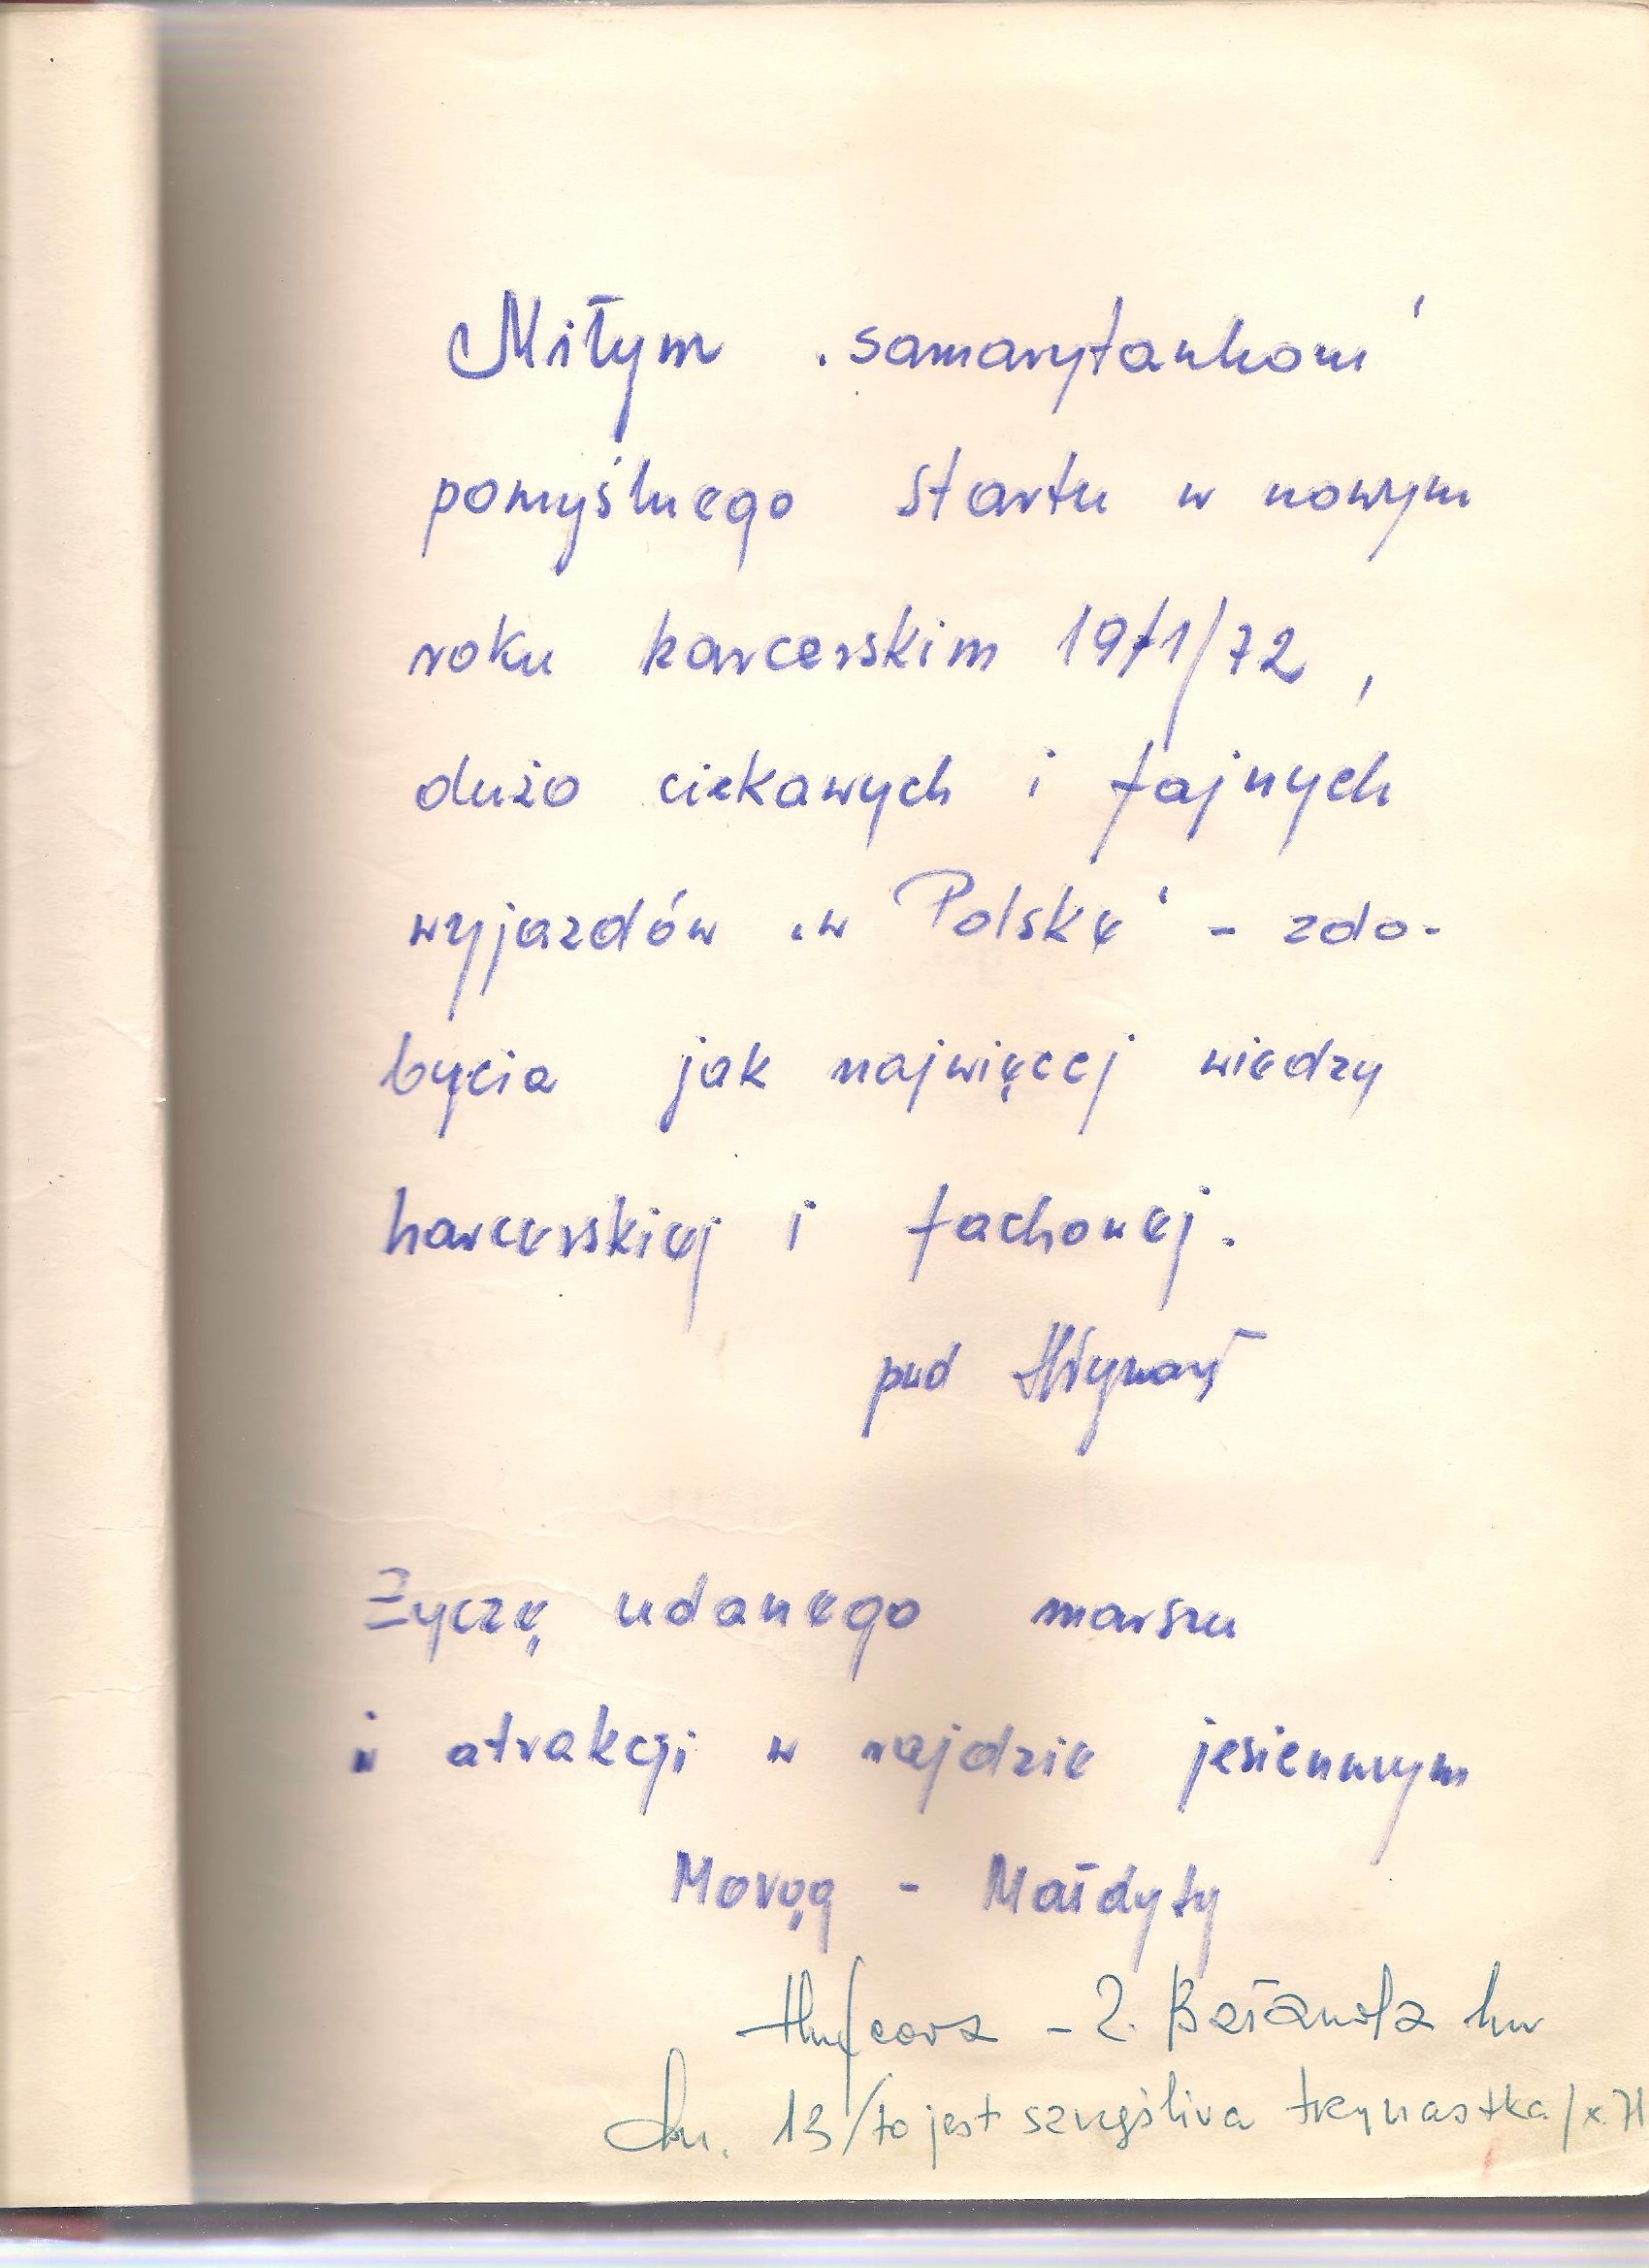 Miłym "samarytankom"
pomyślnego startu w nowym
roku harcerskim 1971/72,
dużo ciekawych i fajnych
wyjazdów "w Polskę" - zdo-
bycia jak najwięcej wiedzy
harcerskiej i fachowej.
pwd Młynarz
Życzę udanego marszu
i atrakcji w rajdzie jesiennym
Morąg - Małdyty
Hufcowa - Z. hm
dn. 13/to jest szczęśliwa trzynastka/x.71